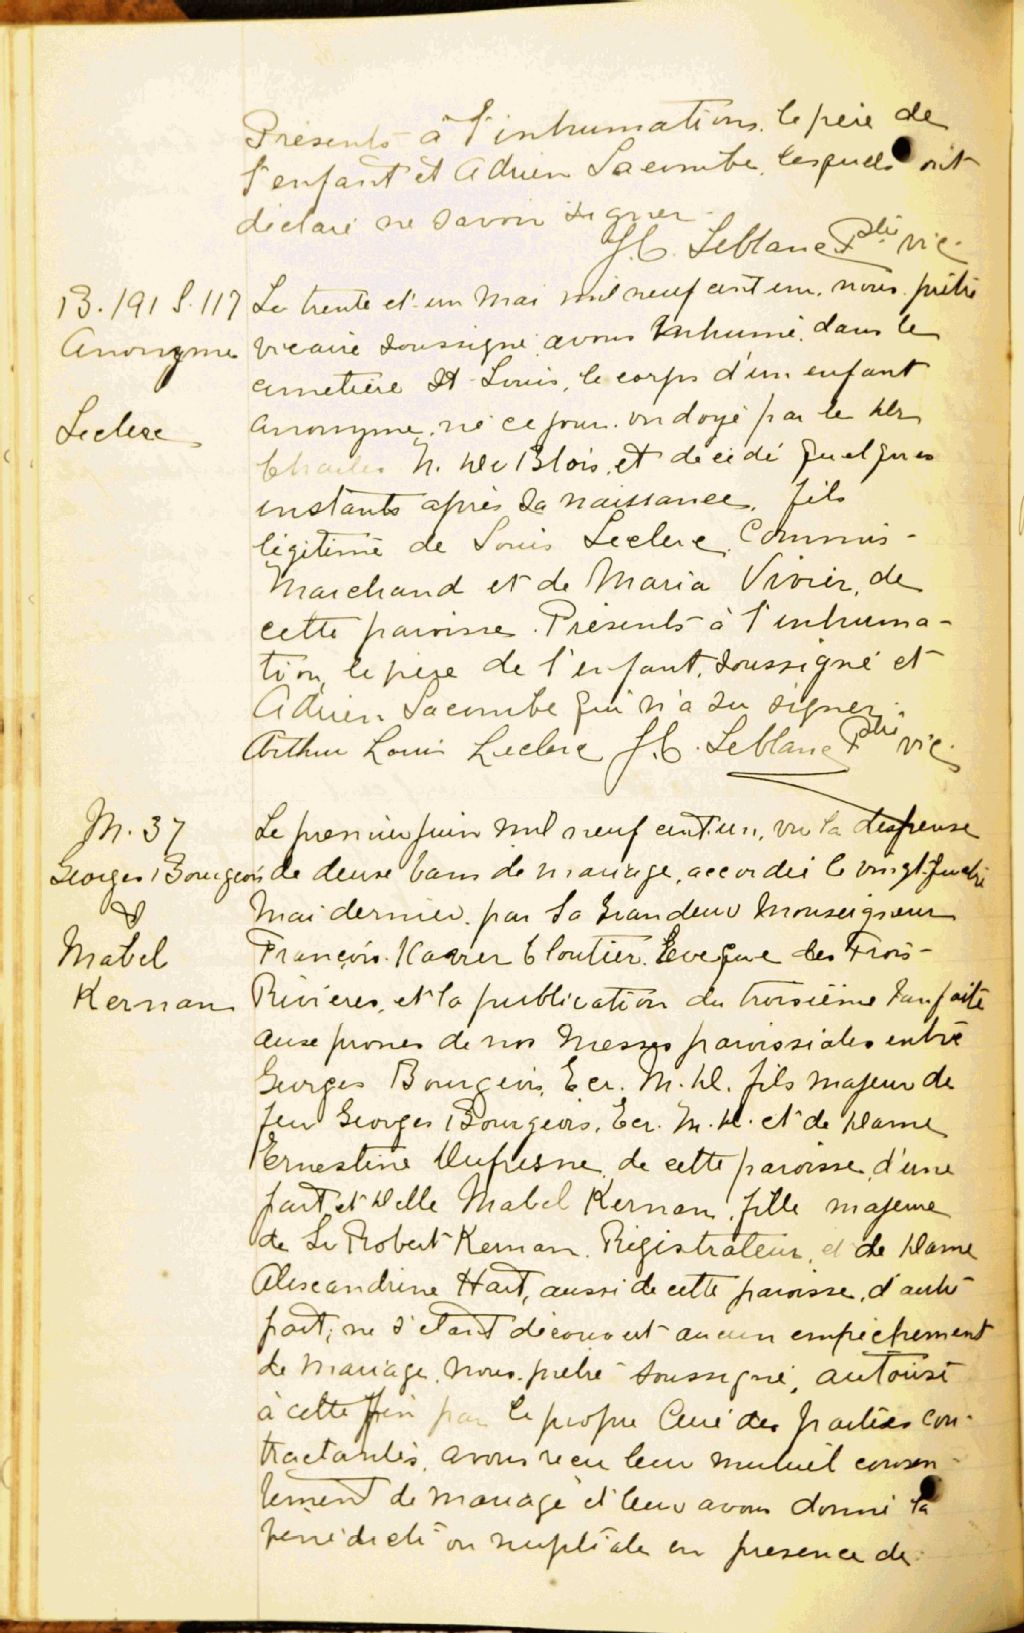 Présents à l'inhumations, le père de
l'enfant et Adrien Lacombe, lesquels ont
déclaré ne savoir signer.
J. C. Leblanc Ptre vic.
B. 191 S. 117
Anonyme
Leclerc
Le trente et un Mai mil neuf cent un, nous prêtre
vicaire soussigné avons inhumé, dans le
cimetière St Louis, le corps d'un enfant
anonyme, né ce jour, ondoyé par le Dr
Charles N. De Blois, et décédé quelques
instants après sa naissance, fils
légitime de Louis Leclerc, Commis-
Marchand et de Maria Vivier, de
cette paroisse. Présents à l'inhuma-
tion, le père de l'enfant, soussigné et
Adrien Lacombe qui n'a su signer.
Arthur Louis Leclerc J. C. Leblanc Ptre vic.
M. 37
Georges Bourgeois
&
Mabel
Kernan
Le premier juin mil neuf cent un, vu la dispense
de deux bans de mariage, accordée le vingt-quatre
Mai dernier, par Sa Grandeur Monseigneur
François Xavier Cloutier, Evêque des Trois-
Rivières, et la publication du troisième ban faite
aux prones de nos Messes paroissiales entre
Georges Bourgeois, Ecr. M. D. fils majeur de
feu Georges Bourgeois, Ecr. M. D. et de Dame
Ernestine Dufresne, de cette paroisse, d'une
part, et Delle Mabel Kernan, fille majeure
de Sr Robert Kernan, Régistrateur, et de Dame
Alexandrine Hart, aussi de cette paroisse, d'autre
part, ne s'étant découvert aucun empêchement
de mariage, nous, prêtre soussigné, autorisé
à cette fin par le propre Curé des parties con-
tractantes, avons reçu leur mutuel consen-
tement de mariage et leur avons donné la
bénédiction nuptiale en présence de